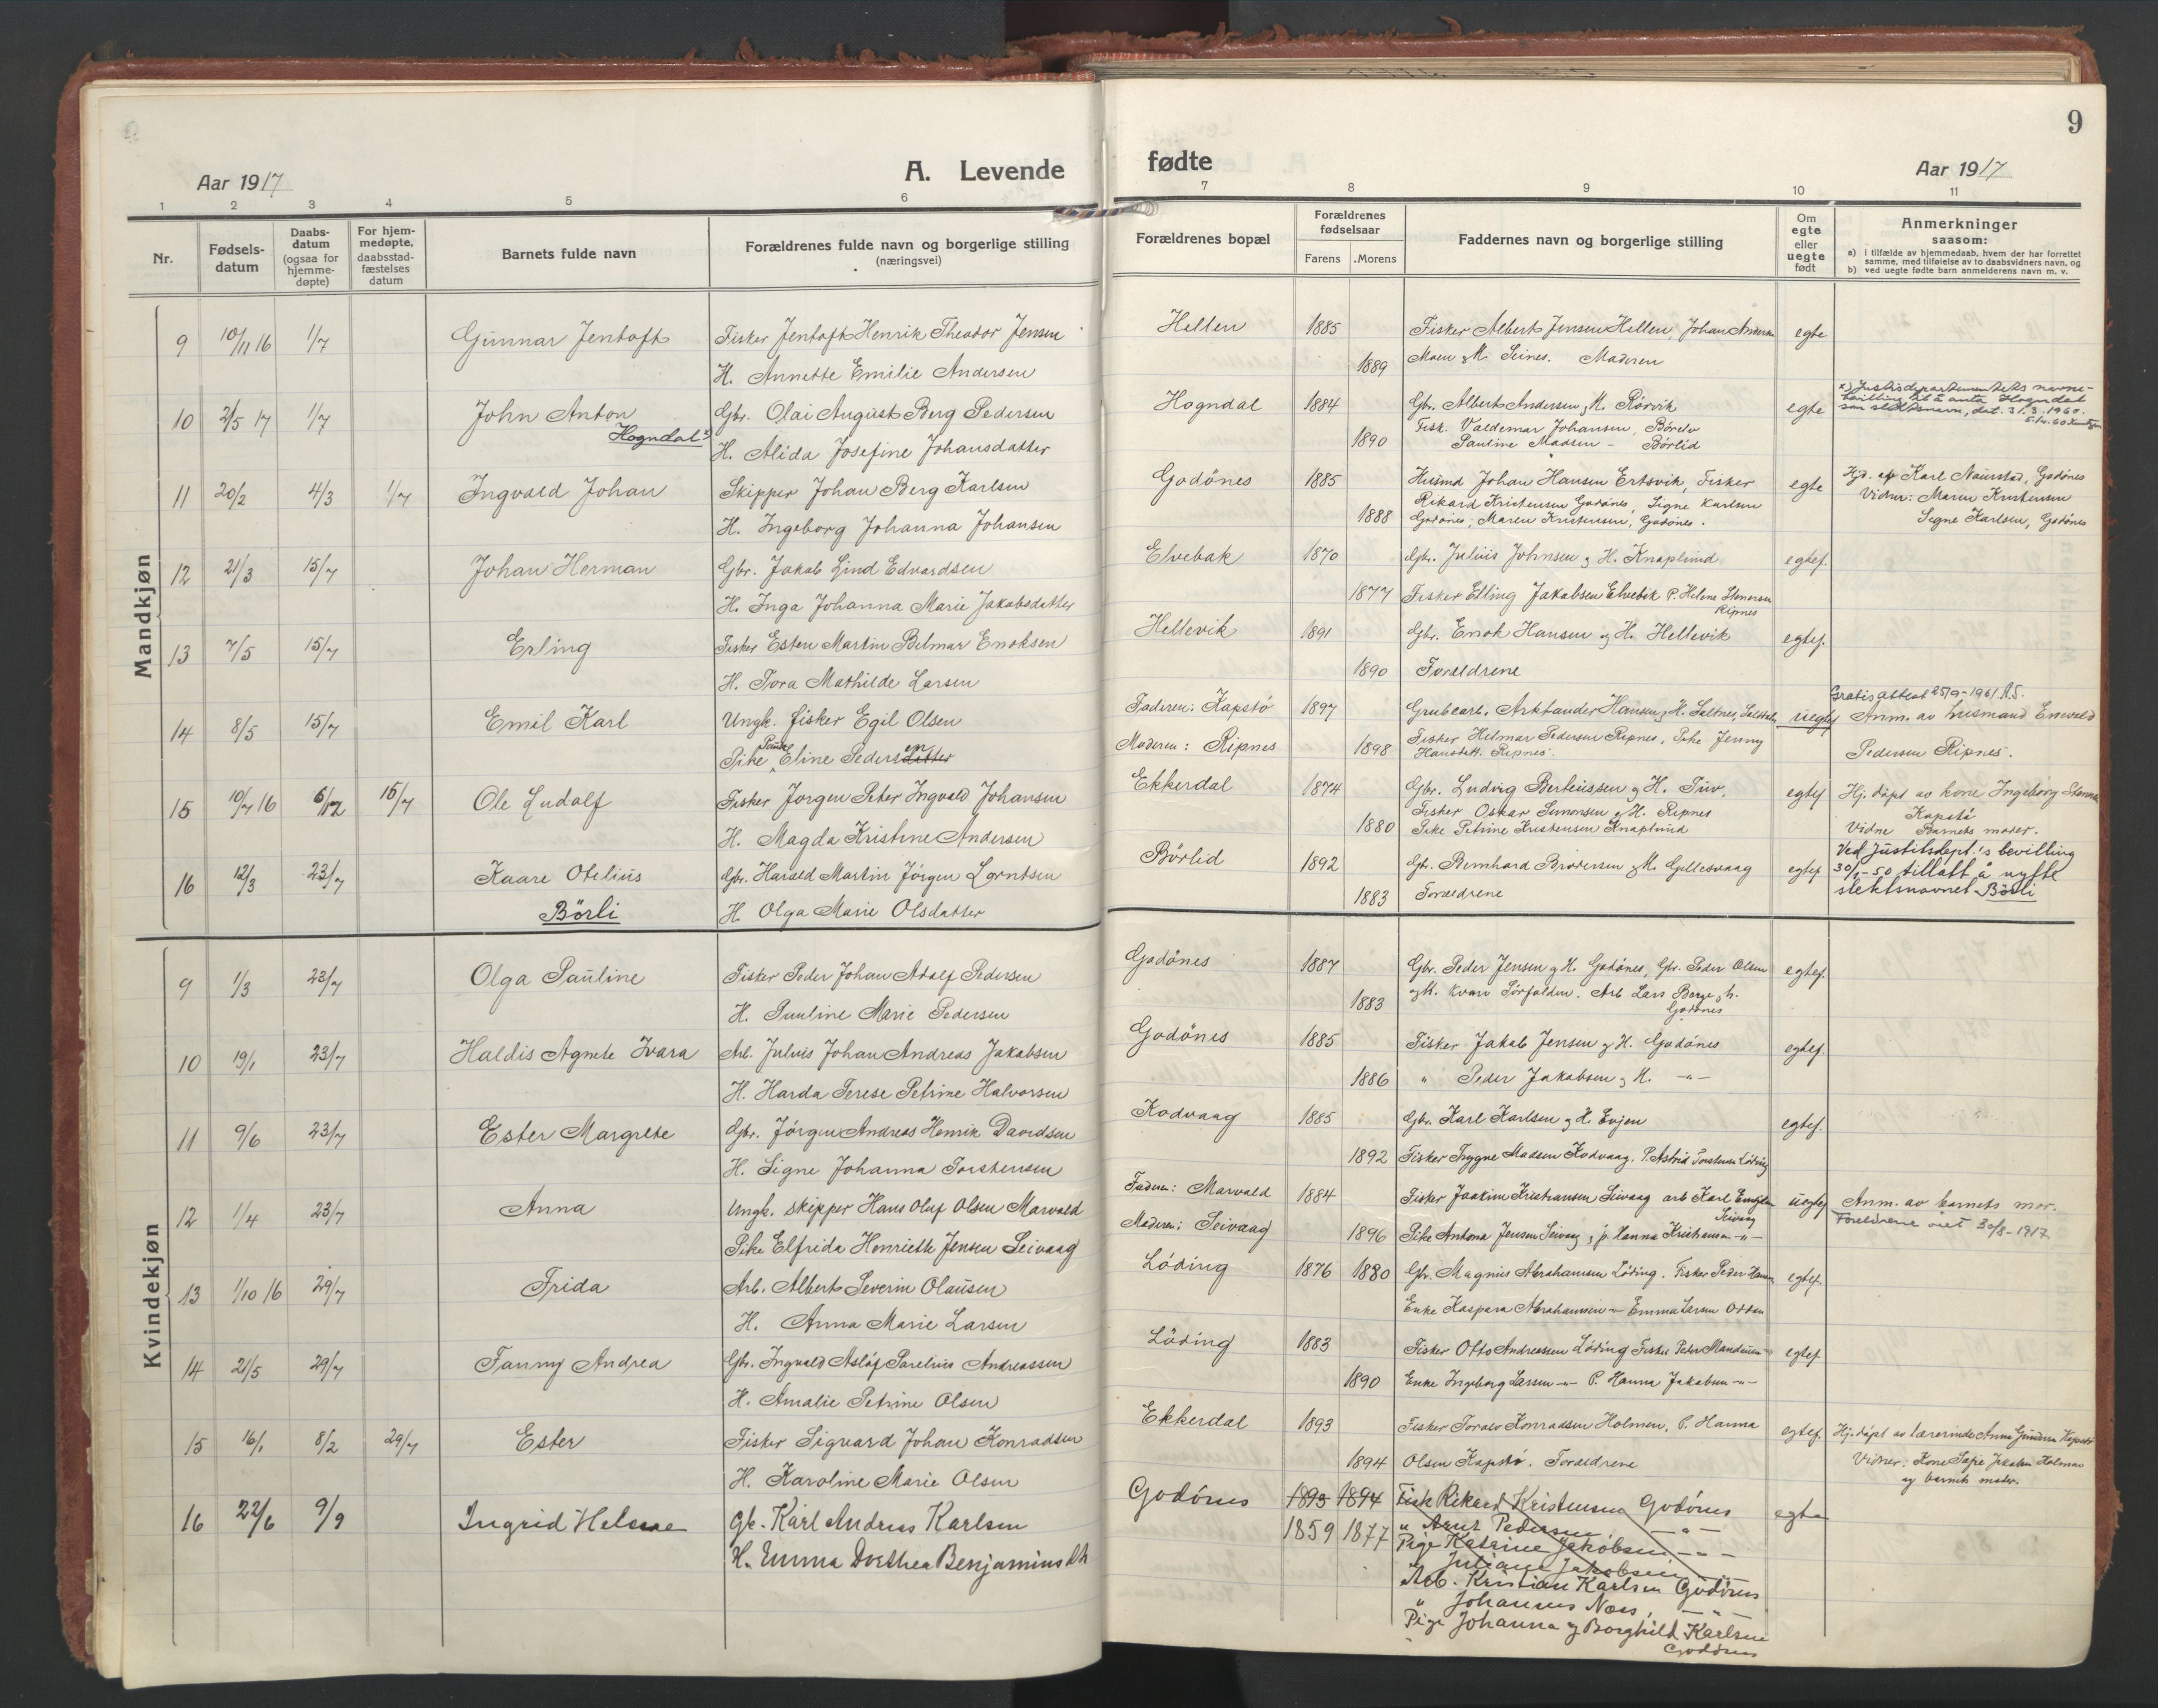 9
Aar 1917
A. Levende
fødte
Aar 1917
1 2 3 4 5 6 7 8 9 10 11
Nr.
Fødsels-
datum
Daabs-
datum
(ogsaa for
hjemme-
døpte)
For hjem-
medøpte,
daabsstad-
fæstelses
datum
Barnets fulde navn
Forældrenes fulde navn og borgerlige stilling
(næringsvei)
Forældrenes bopæl
Forældrenes
fødselsaar
Farens Morens
Faddernes navn og borgerlige stilling
Om
egte
eller
uegte
født
Anmerkninger
saasom:
a) i tilfælde av hjemmedaab, hvem der har forrettet
samme, med tilføielse av to daabsvidners navn, og
b) ved uegte fødte barn anmelderens navn m. v.
Mandkjøn
9 10/11 16 1/7 Gunnar Jentoft Fisker Jentoft Henrik Theodor Jensen Hellen 1885 Fisker Albert Jensen Hellen, Johan Andersen egte
H. Annette Emilie Andersen 1889 Moen & M. Seines. Moderen
10 2/5 17 1/7 John Anton Gbr. Olai August Berg Pedersen Hogndal 1884 Gbr. Albert Andersen & H. Rørvik egte x) Justisdepartementets navne-
bevilling til å anta Hogndal
som slektsnavn, dat. 31.3.1960.
Hogndal x) H. Alida Josefine Johansdatter 1890 Fisk. Valdemar Johansen, Børelv
Pauline Madsen - Børlid
11 20/2 4/3 1/7 Ingvald Johan Skipper Johan Berg Karlsen Godönes 1885 Husmd Johan Hansen Ertsvik, Fisker egte Hjd. af Karl Naurstad, Godönes
H. Ingeborg Johanna Johansen 1888 Rikard Kristensen Godönes, Signe Karlsen
Godönes, Maren Kristensen, Godönes. Vidner: Maren Kristensen
Signe Karlsen, Godönes
12 21/3 15/7 Johan Herman Gbr. Jakob Lind Edvardsen Elvebak 1870 Gbr. Julius Johnsen & H. Knaplund egtef.
H. Inga Johanna Marie Jakobsdatter 1877 Fisker Elling Jakobsen Elvebak P. Helene Stenersen
Ripnes
13 7/5 15/7 Erling Fisker Esten Martin Belmar Enoksen Hellevik 1891 Gbr. Enok Hansen og H. Hellevik egtef.
H. Tora Mathilde Larsen 1890 Foreldrene
14 8/5 15/7 Emil Karl Ungk. fisker Egil Olsen Faderen: Kapstö 1897 Grubearb. Arktander Hansen & H. Saltnes, uegtef Gratis attest 25/9-1961 R.S.
Anm. av husmand Enevald
Pike Eline Pedersen Moderen: Ripnes 1898 Fisker Helmar Pedersen Ripnes, Pike Jenny
Hansdatt. Ripnes. Pedersen Ripnes.
15 10/7 16 6/12 15/7 Ole Ludolf Fisker Jørgen Peter Ingvald Johansen Ekkerdal 1874 Gbr. Ludvig Berteussen & H. Tuv, egtef Hj. døpt av kone Ingeborg
H. Magda Kristine Andersen 1880 Fisker Oskar Simonsen & H. Ripnes
Pike Petrine Kristensen Knaplund Kapstö
Vidne Barnets moder.
16 12/3 23/7 Kaare Otelius Gbr. Harald Martin Jörgen Lorntsen Börlid 1892 Gb. Bernhard Brodersen & H. Gillesvaag egtef Ved Justitsdept.'s bevilling
30/1-50 tillatt å nytte
slektsnavnet Börli
Börli H. Olga Marie Olsdatter 1883 Foreldrene
Kvindekjøn
9 1/3 23/7 Olga Pauline Fisker Peder Johan Adolf Pedersen Godönes 1887 Gbr. Peder Jensen & H. Godönes, Gbr. Peder Olsen egtef.
H. Pauline Marie Pedersen 1883 & H. Kvarv Sørfolden. Arb Lars Berge & h.
Godönes
10 19/1 23/7 Haldis Agnete Ivara Arb. Julius Johan Andreas Jakobsen Godönes 1885 Fisker Jakob Jensen & H. Godönes egtef.
H. Harda Terese Petrine Halvorsen 1886 " Peder Jakobsen & H. -"-
11 9/6 23/7 Ester Margrete Gbr. Jörgen Andreas Henrik Davidsen Kodvaag 1885 Gbr. Karl Karlsen & H. Evjen egtef.
H. Signe Johanna Torstensen 1892 Fisker Trygve Madsen Kodvaag. P. Astrid Torstensen Löding
12 1/4 23/7 Anna Ungk. skipper Hans Oluf Olsen Marvold Faderen: Marvold 1884 Fisker Joakim Kristiansen Seivaag arb Karl uegtef Anm. av barnets mor.
Foreldrene viet 30/8-1917
Pike Elfrida Henriette Jensen Seivaag Moderen: Seivaag 1896 Pike Antona Jensen Seivaag & p. Hanna Kristiansen -"-
13 1/10 16 29/7 Frida Arb. Albert Severin Olausen Löding 1876 1880 Gbr. Magnus Abrahamsen Löding. Fisker Peder Hansen egtef.
H. Anna Marie Larsen Enke Kaspara Abrahamsen -"- Emma Larsen Odden
14 21/5 29/7 Fanny Andrea Gbr. Ingvald Aslöf Parelius Andreassen Löding 1883 Fisker Otto Andreassen Löding Fisker Peder egtef
H. Amalie Petrine Olsen 1890 Enke Ingeborg Larsen -"- P. Hanna Jakobsen -"-
15 16/1 8/2 29/7 Ester Fisker Sigvard Johan Konradsen Ekkerdal 1893 Fisker Toralv Konradsen Holmen, P. Hanna egtef. Hj. döpt av lærerinde Anna Kapstö
H. Karoline Marie Olsen 1894 Olsen Kapstö. Foreldrene Vidner: Kone Jakobsen Holmen
og barnets moder.
16 22/6 9/9 Ingrid Helene Gb. Karl Andreas Karlsen Godönes 1893 1894 Fisk Rikard Kristensen Godönes egte
H. Emma Dorthea Benjamins dtr 1859 1877 " Arnt Pedersen, -"-
Pige Katrine Jakobsen -"-
" Juliane Jakobsen -"-
Arb. Kristian Karlsen Godönes
" Johannes Næss, -"-
Pige Johanna & Borghild Karlsen
Godönes